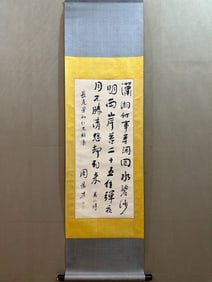 瀟湘何事等閒回水碧沙
明兩岸苔二十五弦彈夜
月不勝清怨卻飛來
仁兄
周